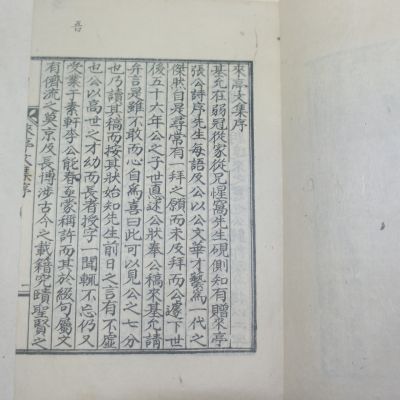 來亭文集序
基允在弱冠從家從兄惺窩先生硯側知有贈來亭
張公詩序先生每語及公以公文華才藝爲一代之
傑然自是尋常有一拜之願而未及拜而公遽下世
後五十六年公之子世直遂公狀奉公稿來基允請
弁言是雖不敢而心自爲喜曰此可以見公之七分
也乃讀其稿而按其狀始知先生前日之言有不虛
也公以高世之才幼而長者授字一聞輒不忘仍又
受業于素軒李公能春亟蒙稱許而其於綴句屬文
有儕流之莫京及長博涉古今之載籍究賾聖賢之
來亭文集序
吾